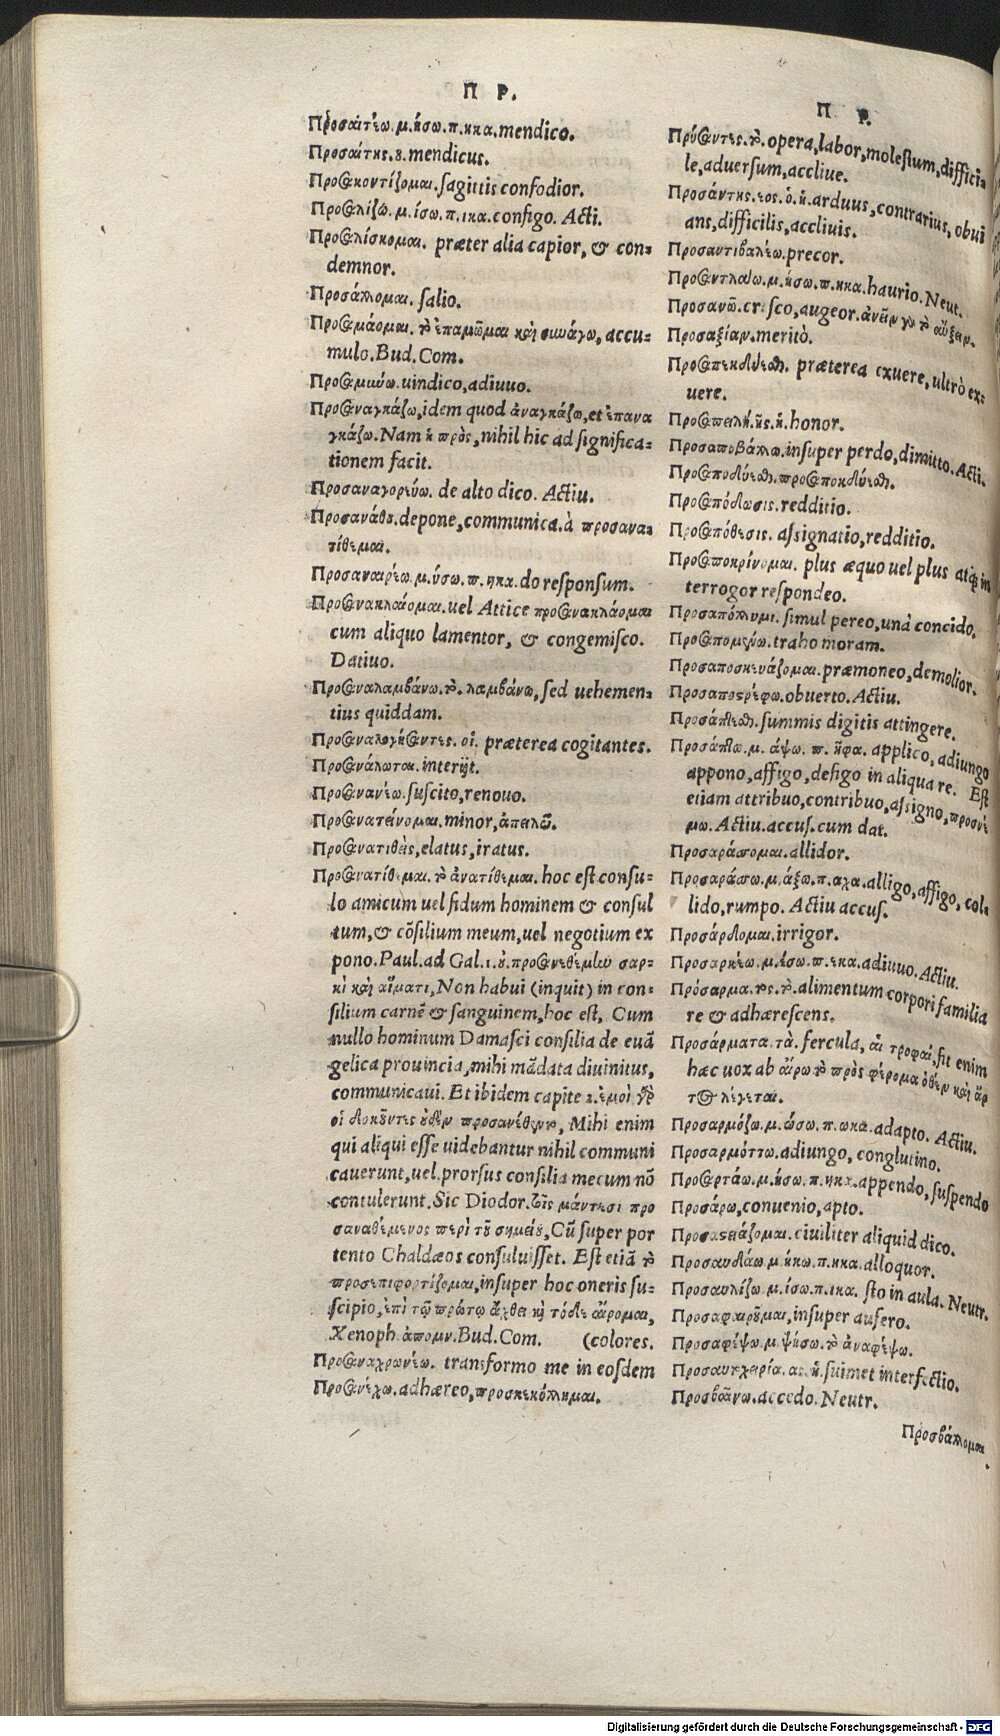 Π Ρ.
Προσαιτέω.μ.ήσω.π.ηκα.mendico.
Προσαίτης.ου.mendicus.
Προσακοντίζομαι.sagittis confodior.
Προσαλίζω.μ.ίσω.π.ικα.configo. Acti.
Προσαλίσκομαι. præter alia capior, & con=
demnor.
Προσάλλομαι. salio.
Προσαμάομαι. τὸ ἐπαμῶμαι καὶ συνάγω, accu=
mulo.Bud.Com.
Προσαμύνω.uindico,adiuuo.
Προσαναγκάζω,idem quod ἀναγκάζω,et ἐπανα
γκάζω.Nam ἡ πρὸς,nihil hic ad significa=
tionem facit.
Προσαναγορεύω. de alto dico. Actiu.
Προσανάθου.depone,communica.à προσανα=
τίθεμαι.
Προσαναιρέω.μ.ύσω.π.ηκα.do responsum.
Προσανακλαόμαι.uel Attice προσανακλάομαι
cum aliquo lamentor, & congemisco.
Datiuo.
Προσαναλαμβάνω.τὸ.λαμβάνω,sed uehemen=
tius quiddam.
Προσαναλογήσαντες.οἱ. præterea cogitantes.
Προσανάλωται.interijt.
Προσανανέω.suscito,renouo.
Προσανατείνομαι.minor,ἀπειλῶ.
Προσανατιθεὶς,elatus,iratus.
Προσανατίθεμαι.τὸ ἀνατίθεμαι. hoc est consu=
lo amicum uel fidum hominem & consul
tum,& cõsilium meum,uel negotium ex
pono.Paul.ad Gal.1.οὐ.προσανεθέμην σαρ=
κὶ καὶ αἵματι,Non habui (inquit) in con=
silium carnẽ & sanguinem,hoc est, Cum
nullo hominum Damasci consilia de euã
gelica prouincia,mihi mãdata diuinitus,
communicaui. Et ibidem capite 2.ἐμοὶ γὰρ
οἱ δοκοῦντες οὐδὲν προσανέθεντο, Mihi enim
qui aliqui esse uidebantur nihil communi
cauerunt,uel prorsus consilia mecum nõ
contulerunt.Sic Diodor.τοῖς μάντεσι προ
σαναθέμενος περὶ τοῦ σημείου,Cũ super por
tento Chaldæos consuluisset. Est etiã τὸ
προσεπιφορτίζομαι,insuper hoc oneris su=
scipio,ἐπὶ τῷ πρώτῳ ἄχθει καὶ τόδε αἴρομαι,
Xenoph.ἀπομν.Bud.Com. (colores.
Προσαναχρωνέω. transformo me in eosdem
Προσανέχω.adhæreo,προσκεκόλλημαι.
Π Ρ.
Πρόσαντες.τὸ.opera,labor,molestum,diffici=
le,aduersum,accliue.
Προσάντης.εος.ὁ.ἡ.arduus,contrarius,obui
ans,difficilis,accliuis.
Προσαντιβαλέω.precor.
Προσαντλάω.μ.ήσω.π.ηκα.haurio.Neut.
Προσανῶ.cresco,augeor.ἀνεῖν γὰρ τὸ αὔξειν.
Προσαξίαν.meritò.
Προσαπεκδύεσθαι. præterea exuere,ultrò ex=
uere.
Προσαπειλή.ῆς.ἡ.honor.
Προσαποβάλλω.insuper perdo,dimitto.Acti.
Προσαποδύεσθαι.προσαποκδύεσθαι.
Προσαπόδωσις.redditio.
Προσαπόθεσις. assignatio,redditio.
Προσαποκρίνομαι. plus æquo uel plus atq; in
terrogor respondeo.
Προσαπόλλυμι. simul pereo,unà concido,
Προσαπομένω.traho moram.
Προσαποσκευάζομαι.præmoneo,demolior.
Προσαποστρέφω.obuerto.Actiu.
Προσάπτεσθαι.summis digitis attingere.
Προσάπτω.μ. άψω. π. ηφα. applico,adiungo
appono,affigo,defigo in aliqua re. Est
etiam attribuo,contribuo,assigno,προσνέ
μω.Actiu.accus.cum dat.
Προσαράττομαι.allidor.
Προσαράττω.μ.άξω.π.αχα.alligo,affigo,col=
lido,rumpo. Actiu accus.
Προσάρδομαι.irrigor.
Προσαρκέω.μ.έσω.π.εκα.adiuuo.Actiu.
Πρόσαρμα.τος.τὸ.alimentum corpori familia
re & adhærescens.
Προσάρματα.τὰ. fercula, αἱ τροφαί,fit enim
hæc uox ab αἴρω τὸ πρὸς φέρομα ὅθεν καὶ ἄρ
τος λέγεται.
Προσαρμόζω.μ.ώσω.π.ωκα.adapto. Actiu.
Προσαρμόττω.adiungo, conglutino.
Προσαρτάω.μ.ήσω.π.ηκα.appendo,suspendo
Προσάρω,conuenio,apto.
Προσαστειάζομαι.ciuiliter aliquid dico.
Προσαυδάω.μ.ήκω.π.ηκα.alloquor.
Προσαυλίζω.μ.ίσω.π.ικα. sto in aula. Neutr.
Προσαφαιροῦμαι,insuper aufero.
Προσαφέψω.μ.ψήσω.τὸ ἀναφέψω.
Προσαυχειρία.ας.ἡ.suimet interfectio.
Προσβαίνω.accedo.Neutr.
Προσβάλλομαι
Digitalisierung gefördert durch die Deutsche Forschungsgemeinschaft - DFG